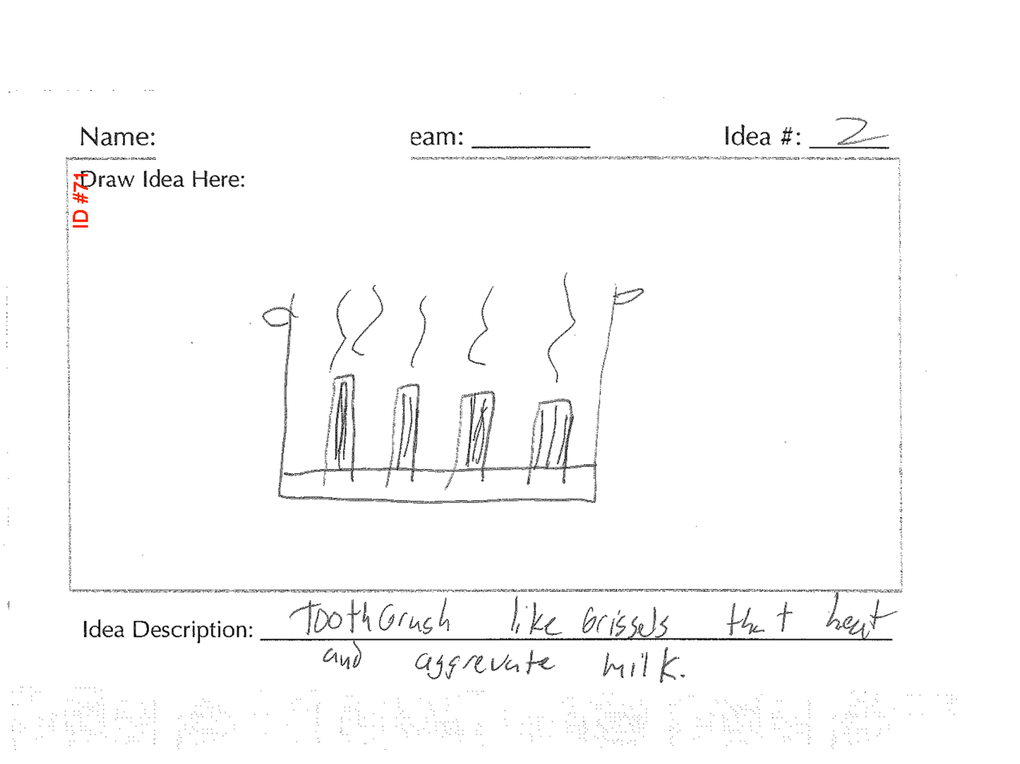 Name: eam: ________ Idea #: 2
Draw Idea Here:
ID #71
Idea Description: Toothbrush like brissels that heat
and aggrevate milk.